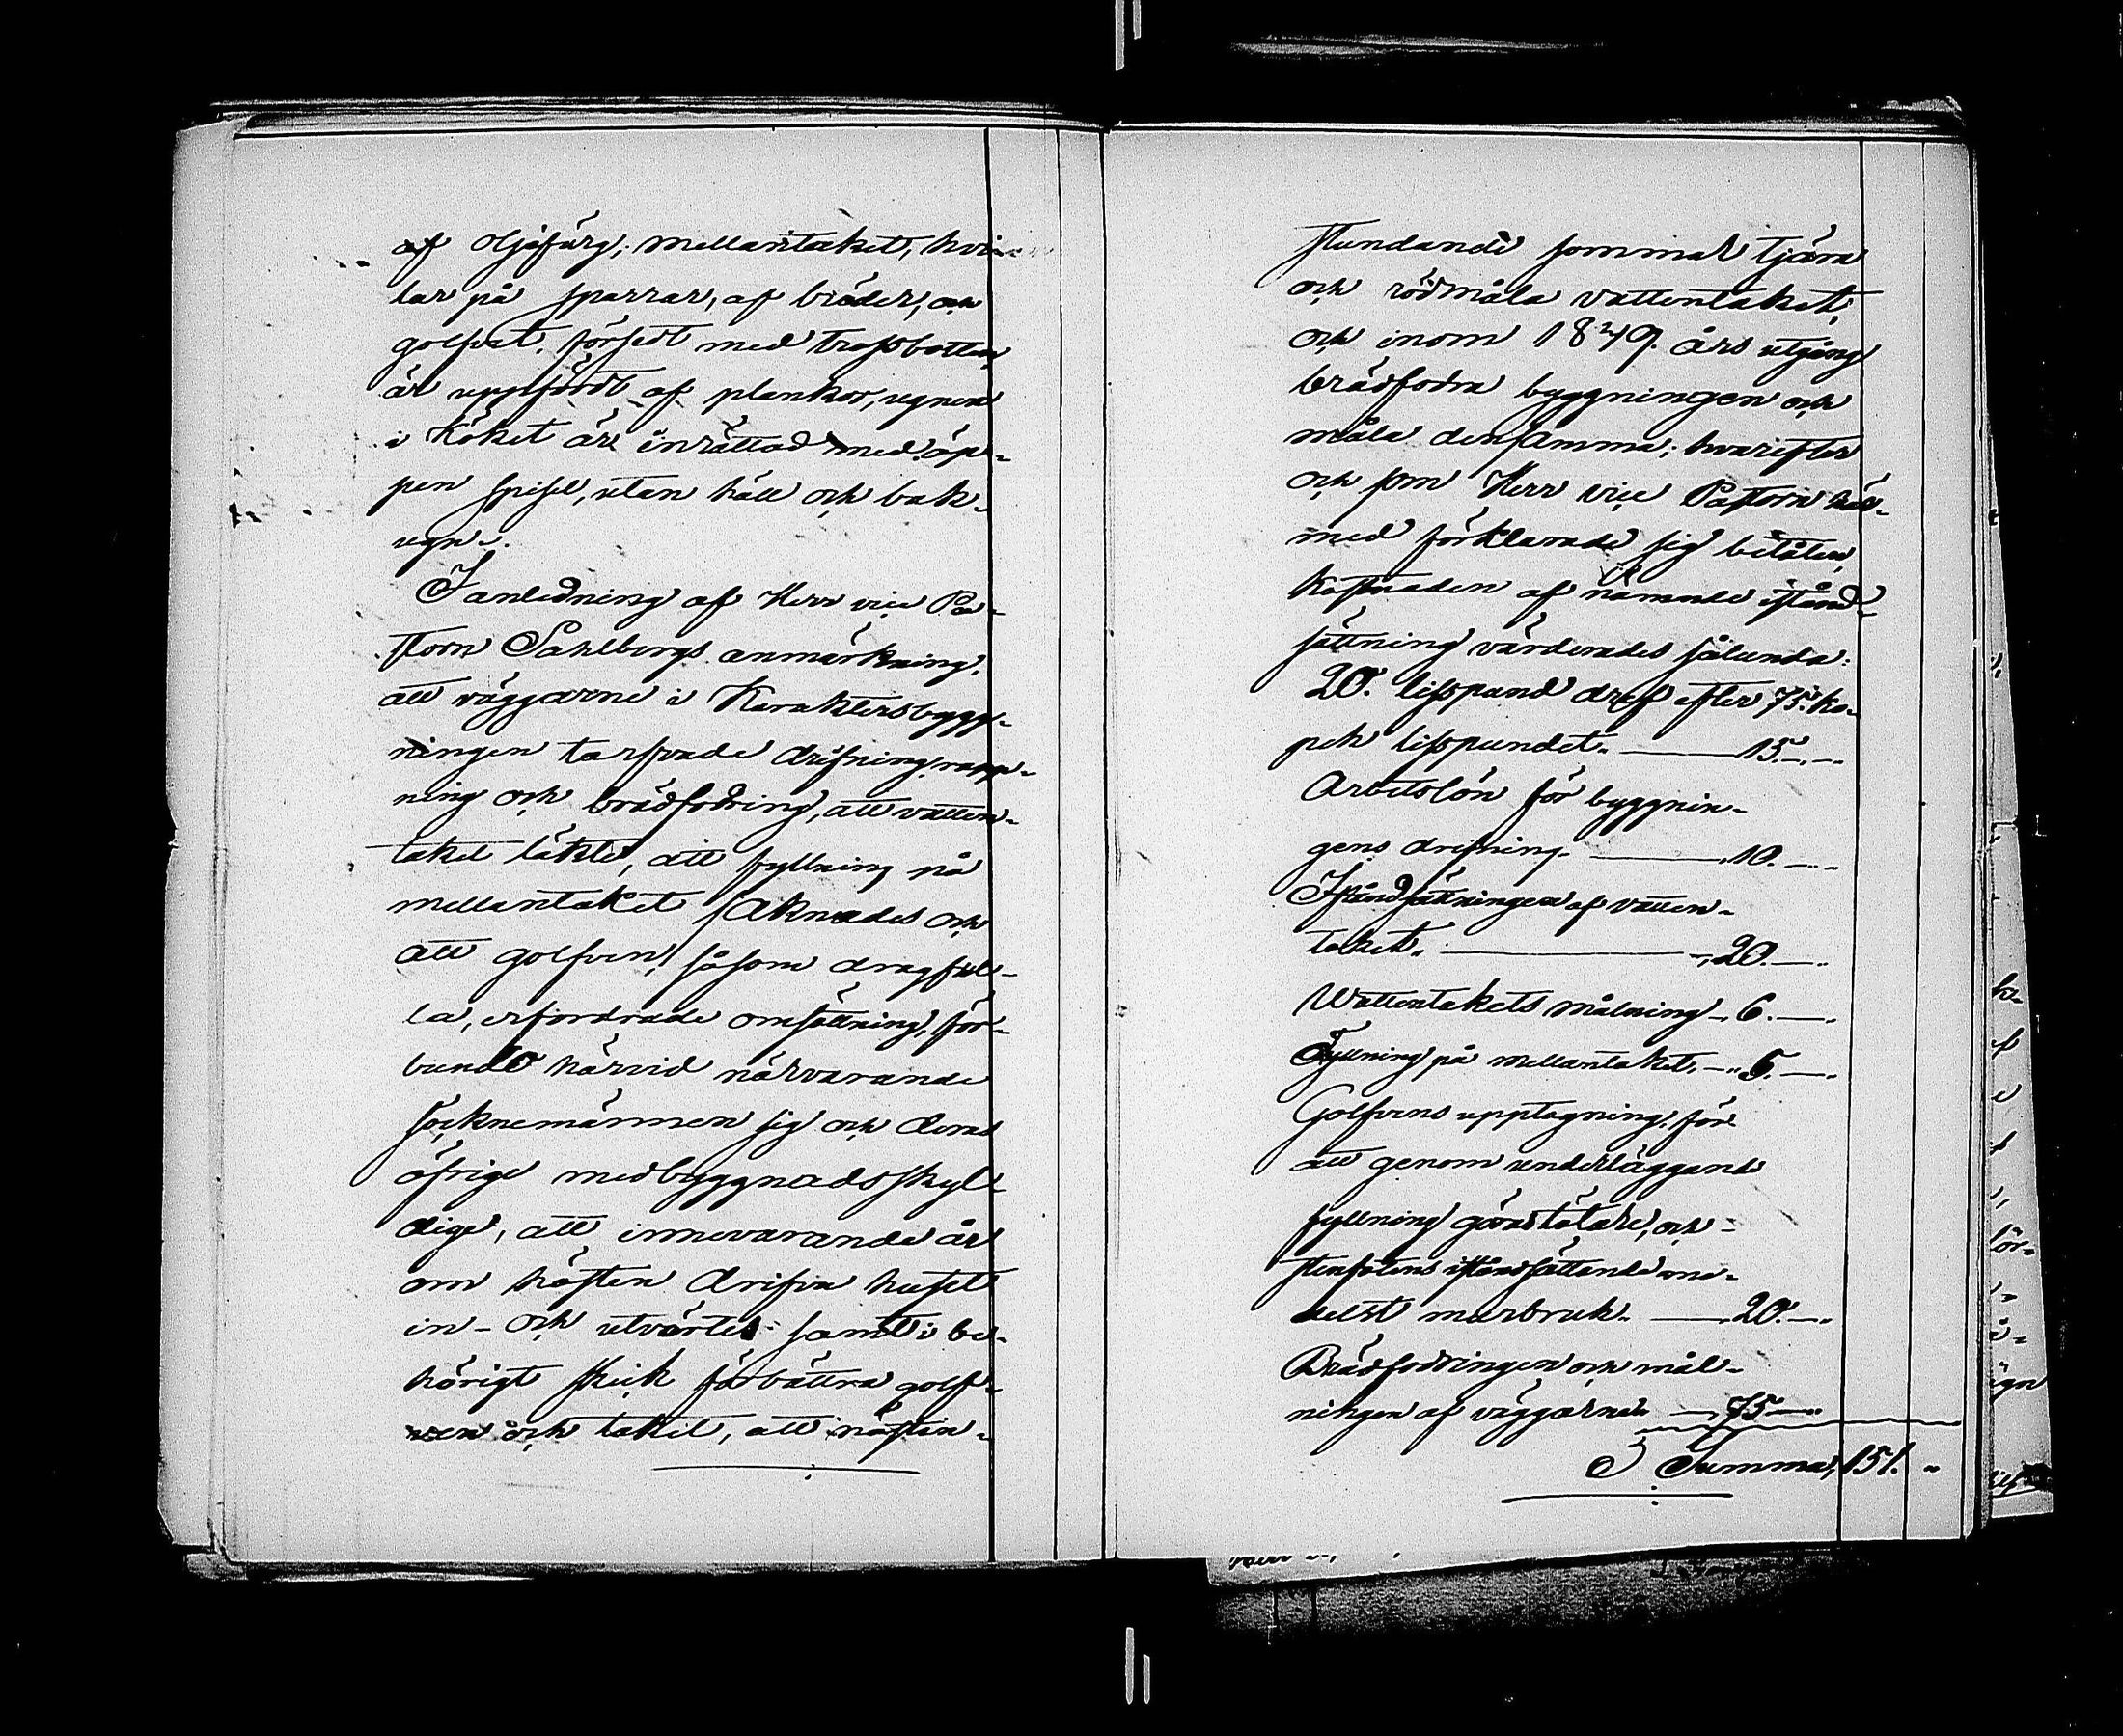 af oljefärg; mellantaket, hvi-
lar på sparrar, af bräder, och
golfvet, försedt med trossbotten,
är uppfördt af plankor, ugnen
i Köket är inrättad med öp-
pen spisel, utan häll och bak-
ugn.
I anledning af Herr vice Pa-
storn Sahlbergs anmärkning,
att väggarne i Karaktersbygg-
ningen tarfvade drifning, rapp-
ning och brädfodring, att vatten-
taket läkte, att fyllning på
mellantaket saknades och
att golfven, såsom dragful-
la, erfordrade omsättning, för-
bundo härvid närvarande
socknemännen sig och deras
öfrige medbyggnadsskyl-
dige, att innevarande år
om hösten drifva huset
in- och utvärtes samt i be-
hörigt skick förbättra golf-
ven och taket, att nästin-
stundande sommar tjära
och rödmåla vattentaket,
och inom 1849 års utgång
brädfodra byggningen och
måla densamma; hvarefter
och som Herr vice Pastorn här-
med förklarade sig belåten,
kostnaden af nämnde istånd-
sättning värderades sålunda:
20. lisspund dref efter 75. ko-
pek lisspundet. 15.
Arbetslön för byggnin-
gens drifning. 10.
Iståndsättningen af vatten-
taket. 20.
Wattentakets målning 6.
Fyllning på mellantaket. 5.
Golfvens upptagning, för
att genom underläggande
fyllning göras tätare, och
stenfotens iståndsättande me-
delst murbruk. 20.
Brädfodringen och mål-
ningen af väggarne 75
S Summa, 151.